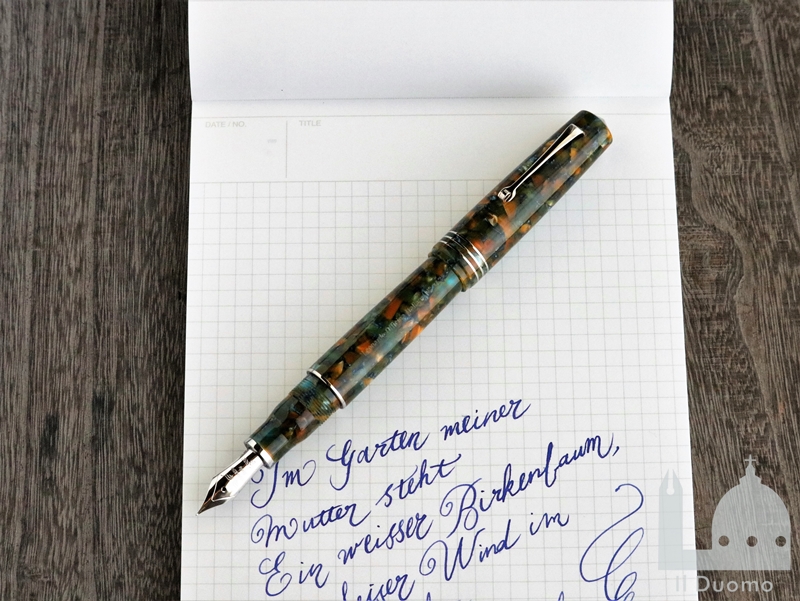 DATE / NO.
TITLE
Im Garten meiner
Mutter steht
Ein weisser Birkenbaum,
leiser Wind im
Il Duomo